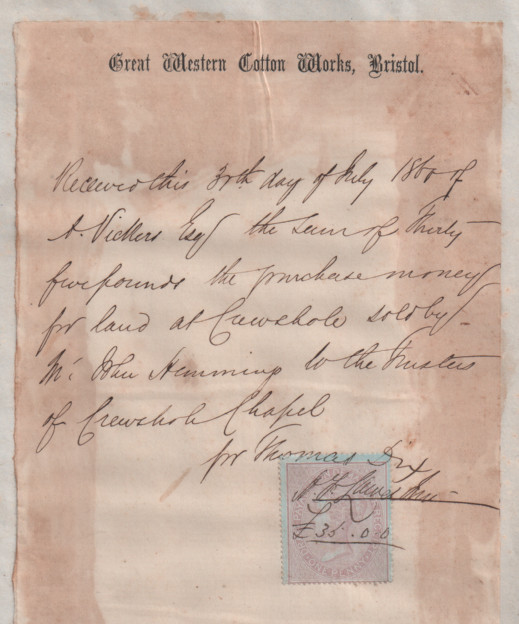 Great Western Cotton Works, Bristol.
Received this 30th day of July 1860 of
A. Vickers Esq the sum of Thirty
five pounds the purchase money
for land at Crewshole sold by
Mr. John Hemming to the Trustees
of Crewshole Chapel
for Thomas Dix
£35.0.0